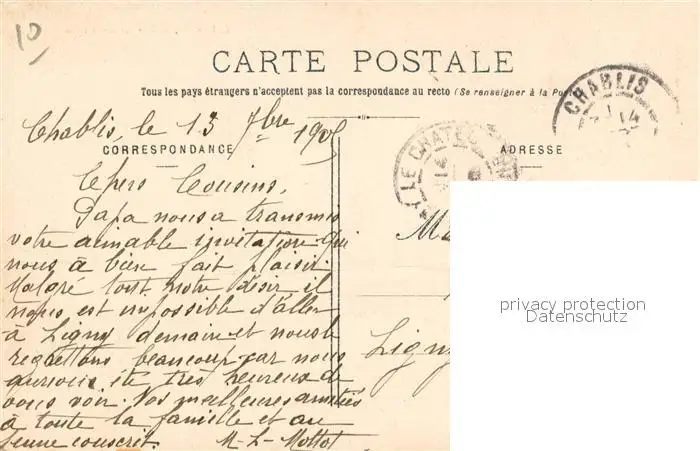 10
CARTE POSTALE
Tous les pays étrangers n'acceptent pas la correspondance au recto (Se renseigner à la Poste)
CHABLIS
14
Chablis, le 13 7bre 190
CORRESPONDANCE
ADRESSE
LE CHATEL
Chers Cousins,
Papa nous a transmis
votre aimable invitation qui
nous a bien fait plaisir.
Malgré tout notre désir il
nous est impossible d'aller
à Ligny demain et nous le
regrettons beaucoup car nous
aurions été très heureux de
vous voir. Nos meilleures amitiés
à toute la famille et au
jeune conscrit. M-L-Mottot
Ligny
privacy protection
Datenschutz